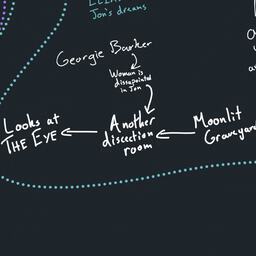 Jon's dreams
Georgie Barker
Woman is
dissapointed
in Jon
Looks at
THE EYE
Another
discection
room
Moonlit
Graveyard